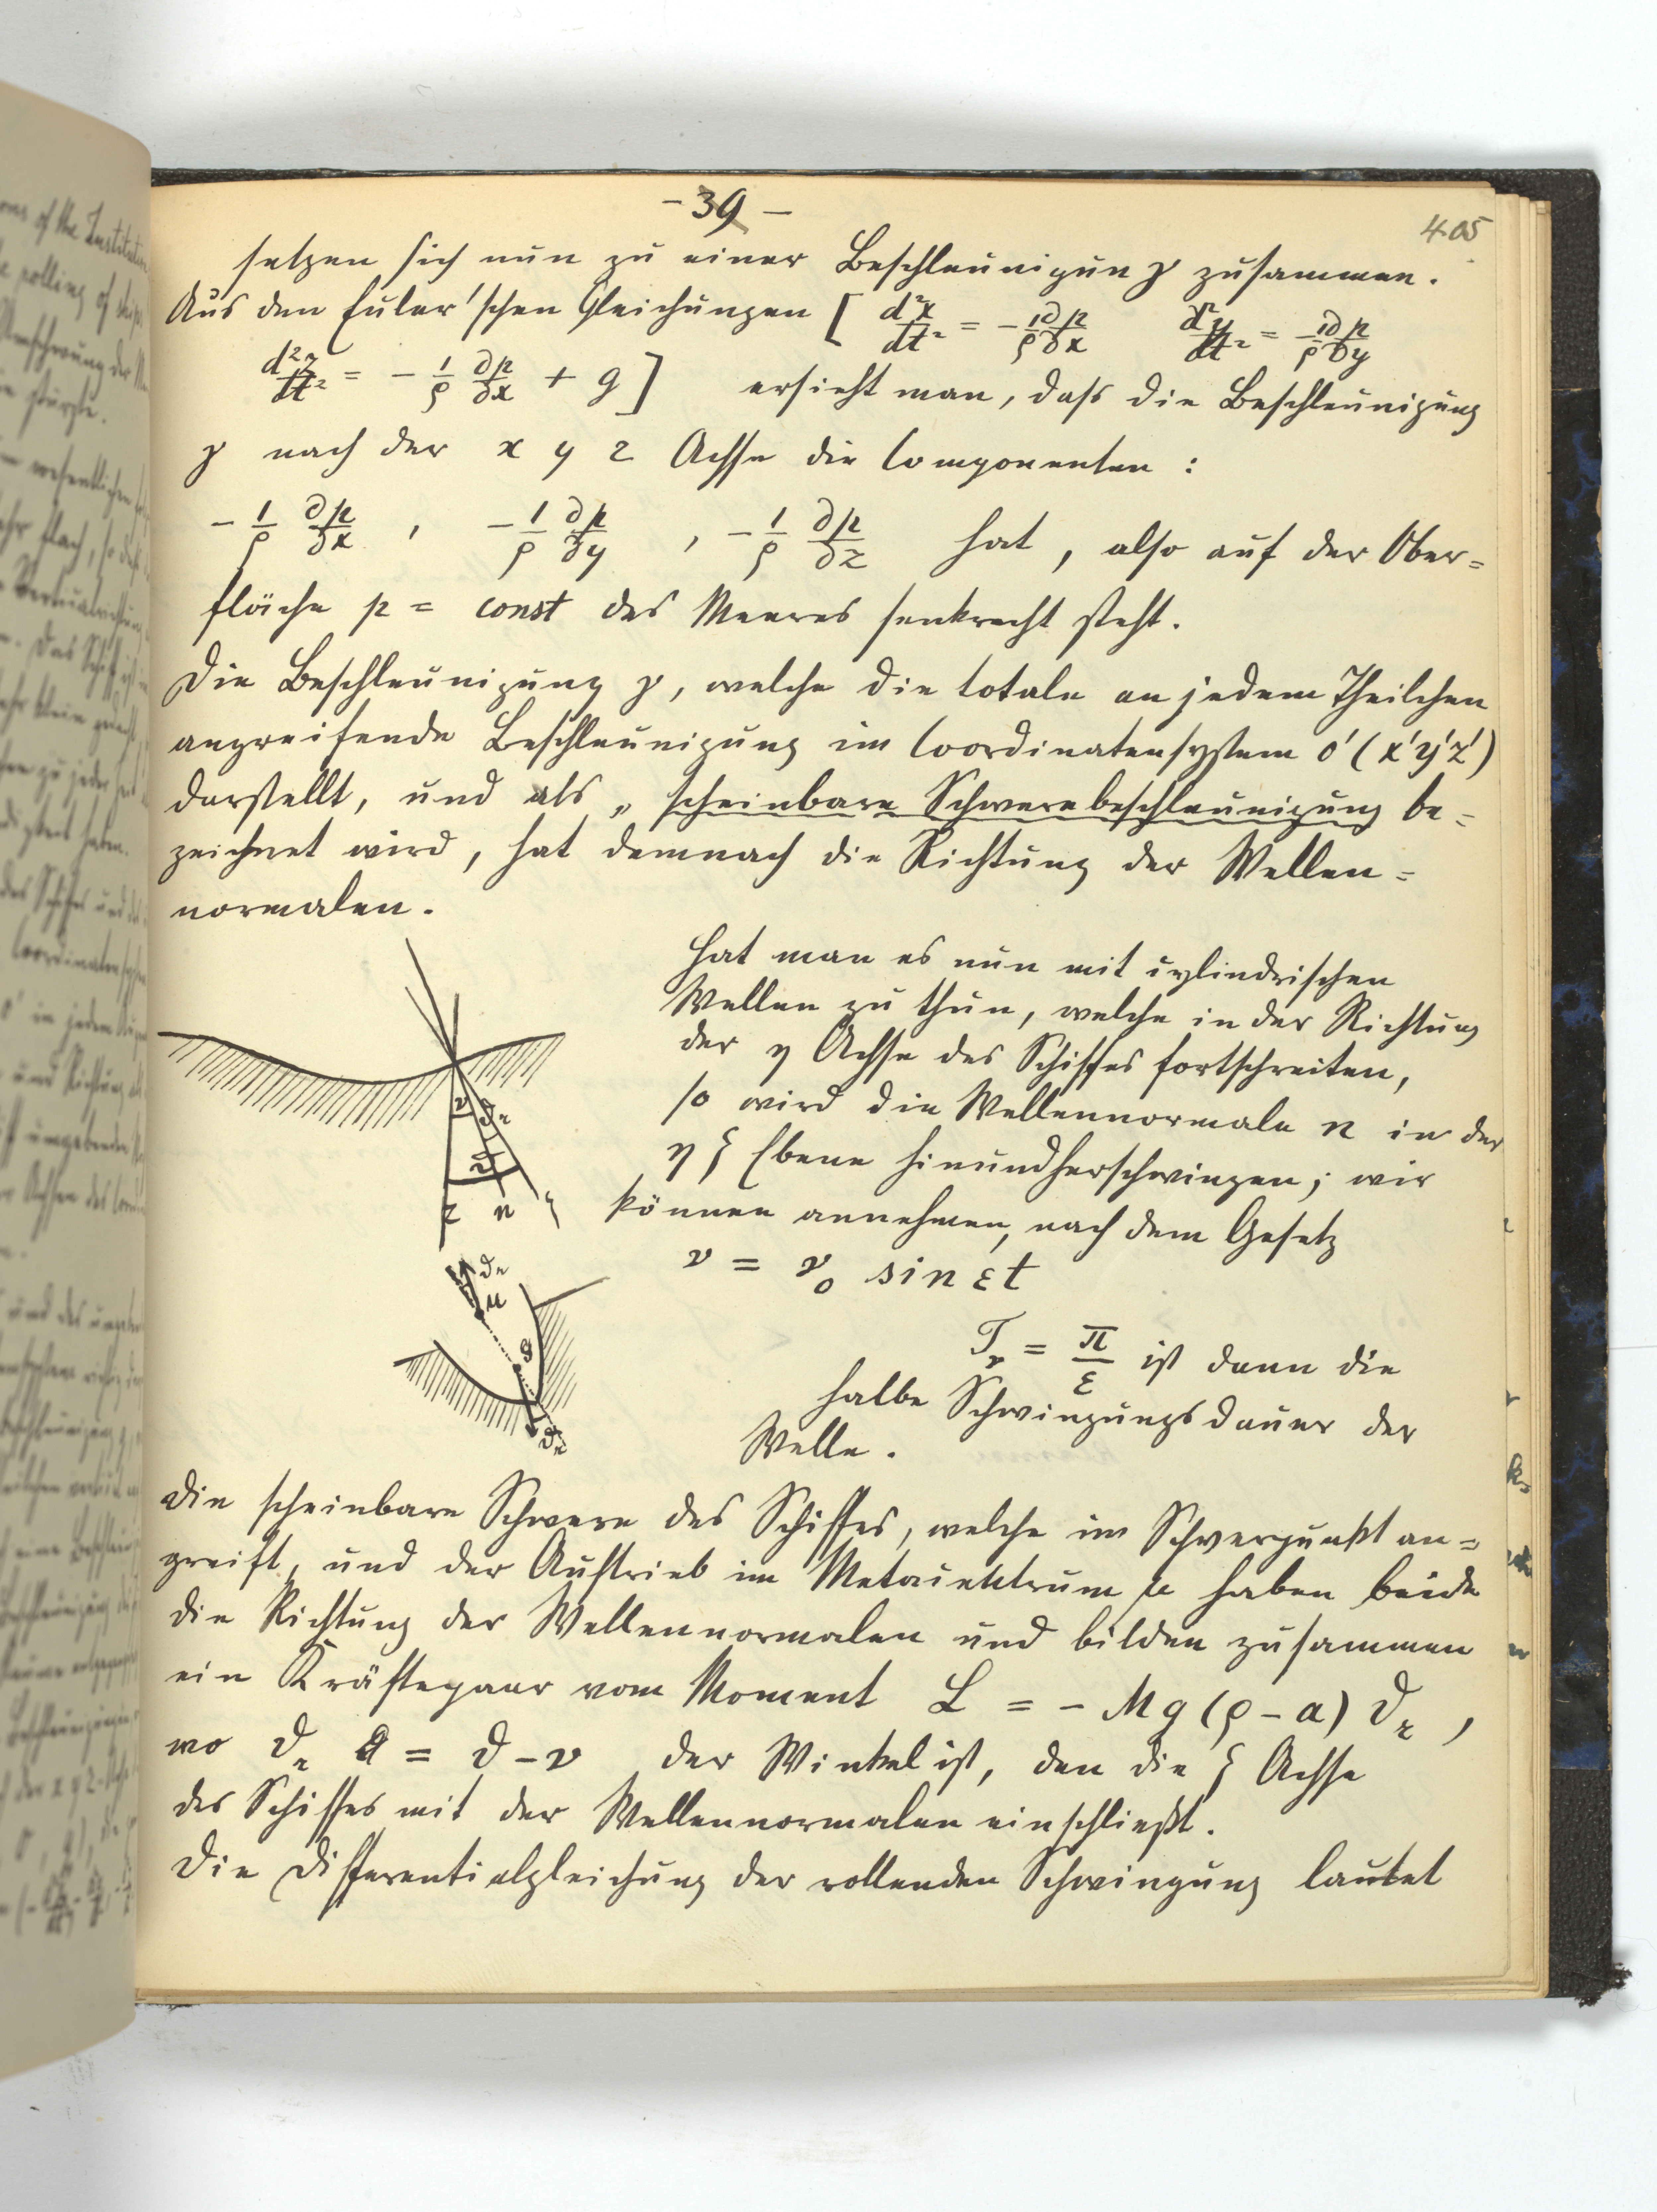 - 39 -
405
setzen sich nun zu einer Beschleunigung γ zusammen.
Aus den Euler'schen Gleichungen [ d²x/dt² = - 1/ρ ∂p/∂x   d²y/dt² = - 1/ρ ∂p/∂y
d²z/dt² = - 1/ρ ∂p/∂x + g ]   ersieht man, dass die Beschleunigung
γ nach der x y z Achse die Componenten :
- 1/ρ ∂p/∂x , - 1/ρ ∂p/∂y , - 1/ρ ∂p/∂z hat, also auf der Ober=
fläche p = const des Meeres senkrecht steht.
Die Beschleunigung γ, welche die totale an jedem Theilchen
angreifende Beschleunigung im Coordinatensystem O' (x'y'z')
darstellt, und als „ scheinbare Schwerebeschleunigung be=
zeichnet wird, hat demnach die Richtung der Wellen=
normalen.
Hat man es nun mit cylindrischen
Wellen zu thun, welche in der Richtung
der η Achse des Schiffes fortschreiten,
so wird die Wellennormale n in der
η ζ Ebene hinundherschwingen; wir
können annehmen, nach dem Gesetz
ν = ν₀ sin εt
T_ν = π/ε ist dann die
halbe Schwingungsdauer der
Welle.
ν ϑr
ϑ
z n ζ
ϑr
μ
S
ϑr
Die scheinbare Schwere des Schiffes, welche im Schwerpunkt an=
greift, und der Auftrieb im Metacentrum μ haben beide
die Richtung der Wellennormalen und bilden zusammen
ein Kräftepaar vom Moment L = - Mg (ρ - a) ϑr ,
wo ϑr = ϑ - ν der Winkel ist, den die ζ Achse
des Schiffes mit der Wellennormalen einschließt.
Die Differentialgleichung der rollenden Schwingung lautet